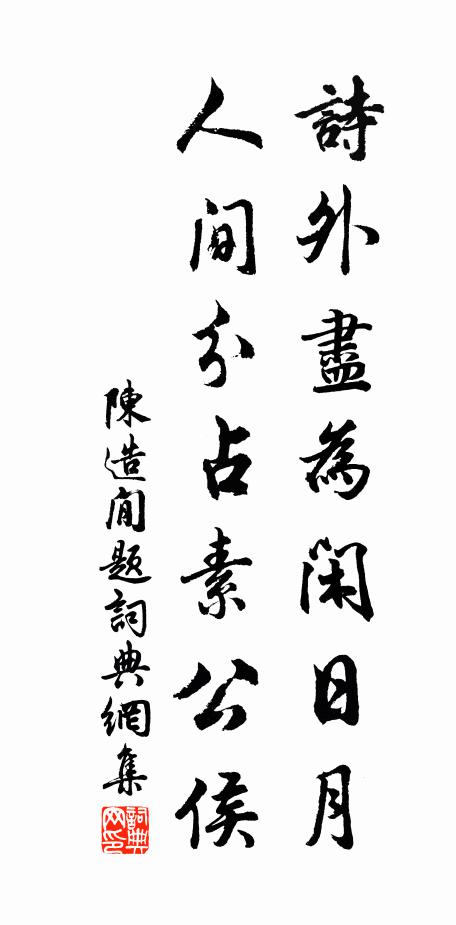 詩外盡為閑日月
人間分占素公侯
陳造閒題詞典網集
詞典网印